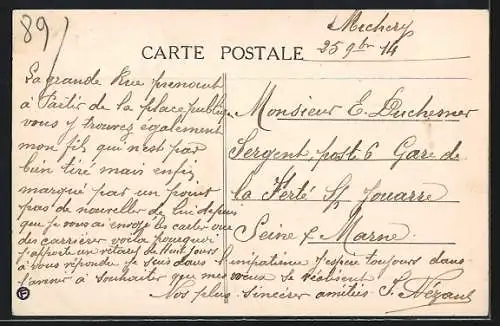 89
Michery
25 9bre 14
CARTE POSTALE
La grande Rue prenant
à Partir de la place publique
vous y trouvez également
mon fil qui n'est pas
bien tiré mais enfin
marqué par un point
pas de nouvelles de lui depuis
que je vous ai envoyé les cartes vue
des carrières voila pourquoi
j'apporte un retard de huit jours
à vous répondre je suis dans l'impatience j'espère toujours dans
l'avenir à souhaiter que mes voeux se réalisent
Nos plus sincères amitiés
Monsieur E. Duchesner
Sergent poste 6 Gare de
la Ferté s/s Jouarre
Seine & Marne